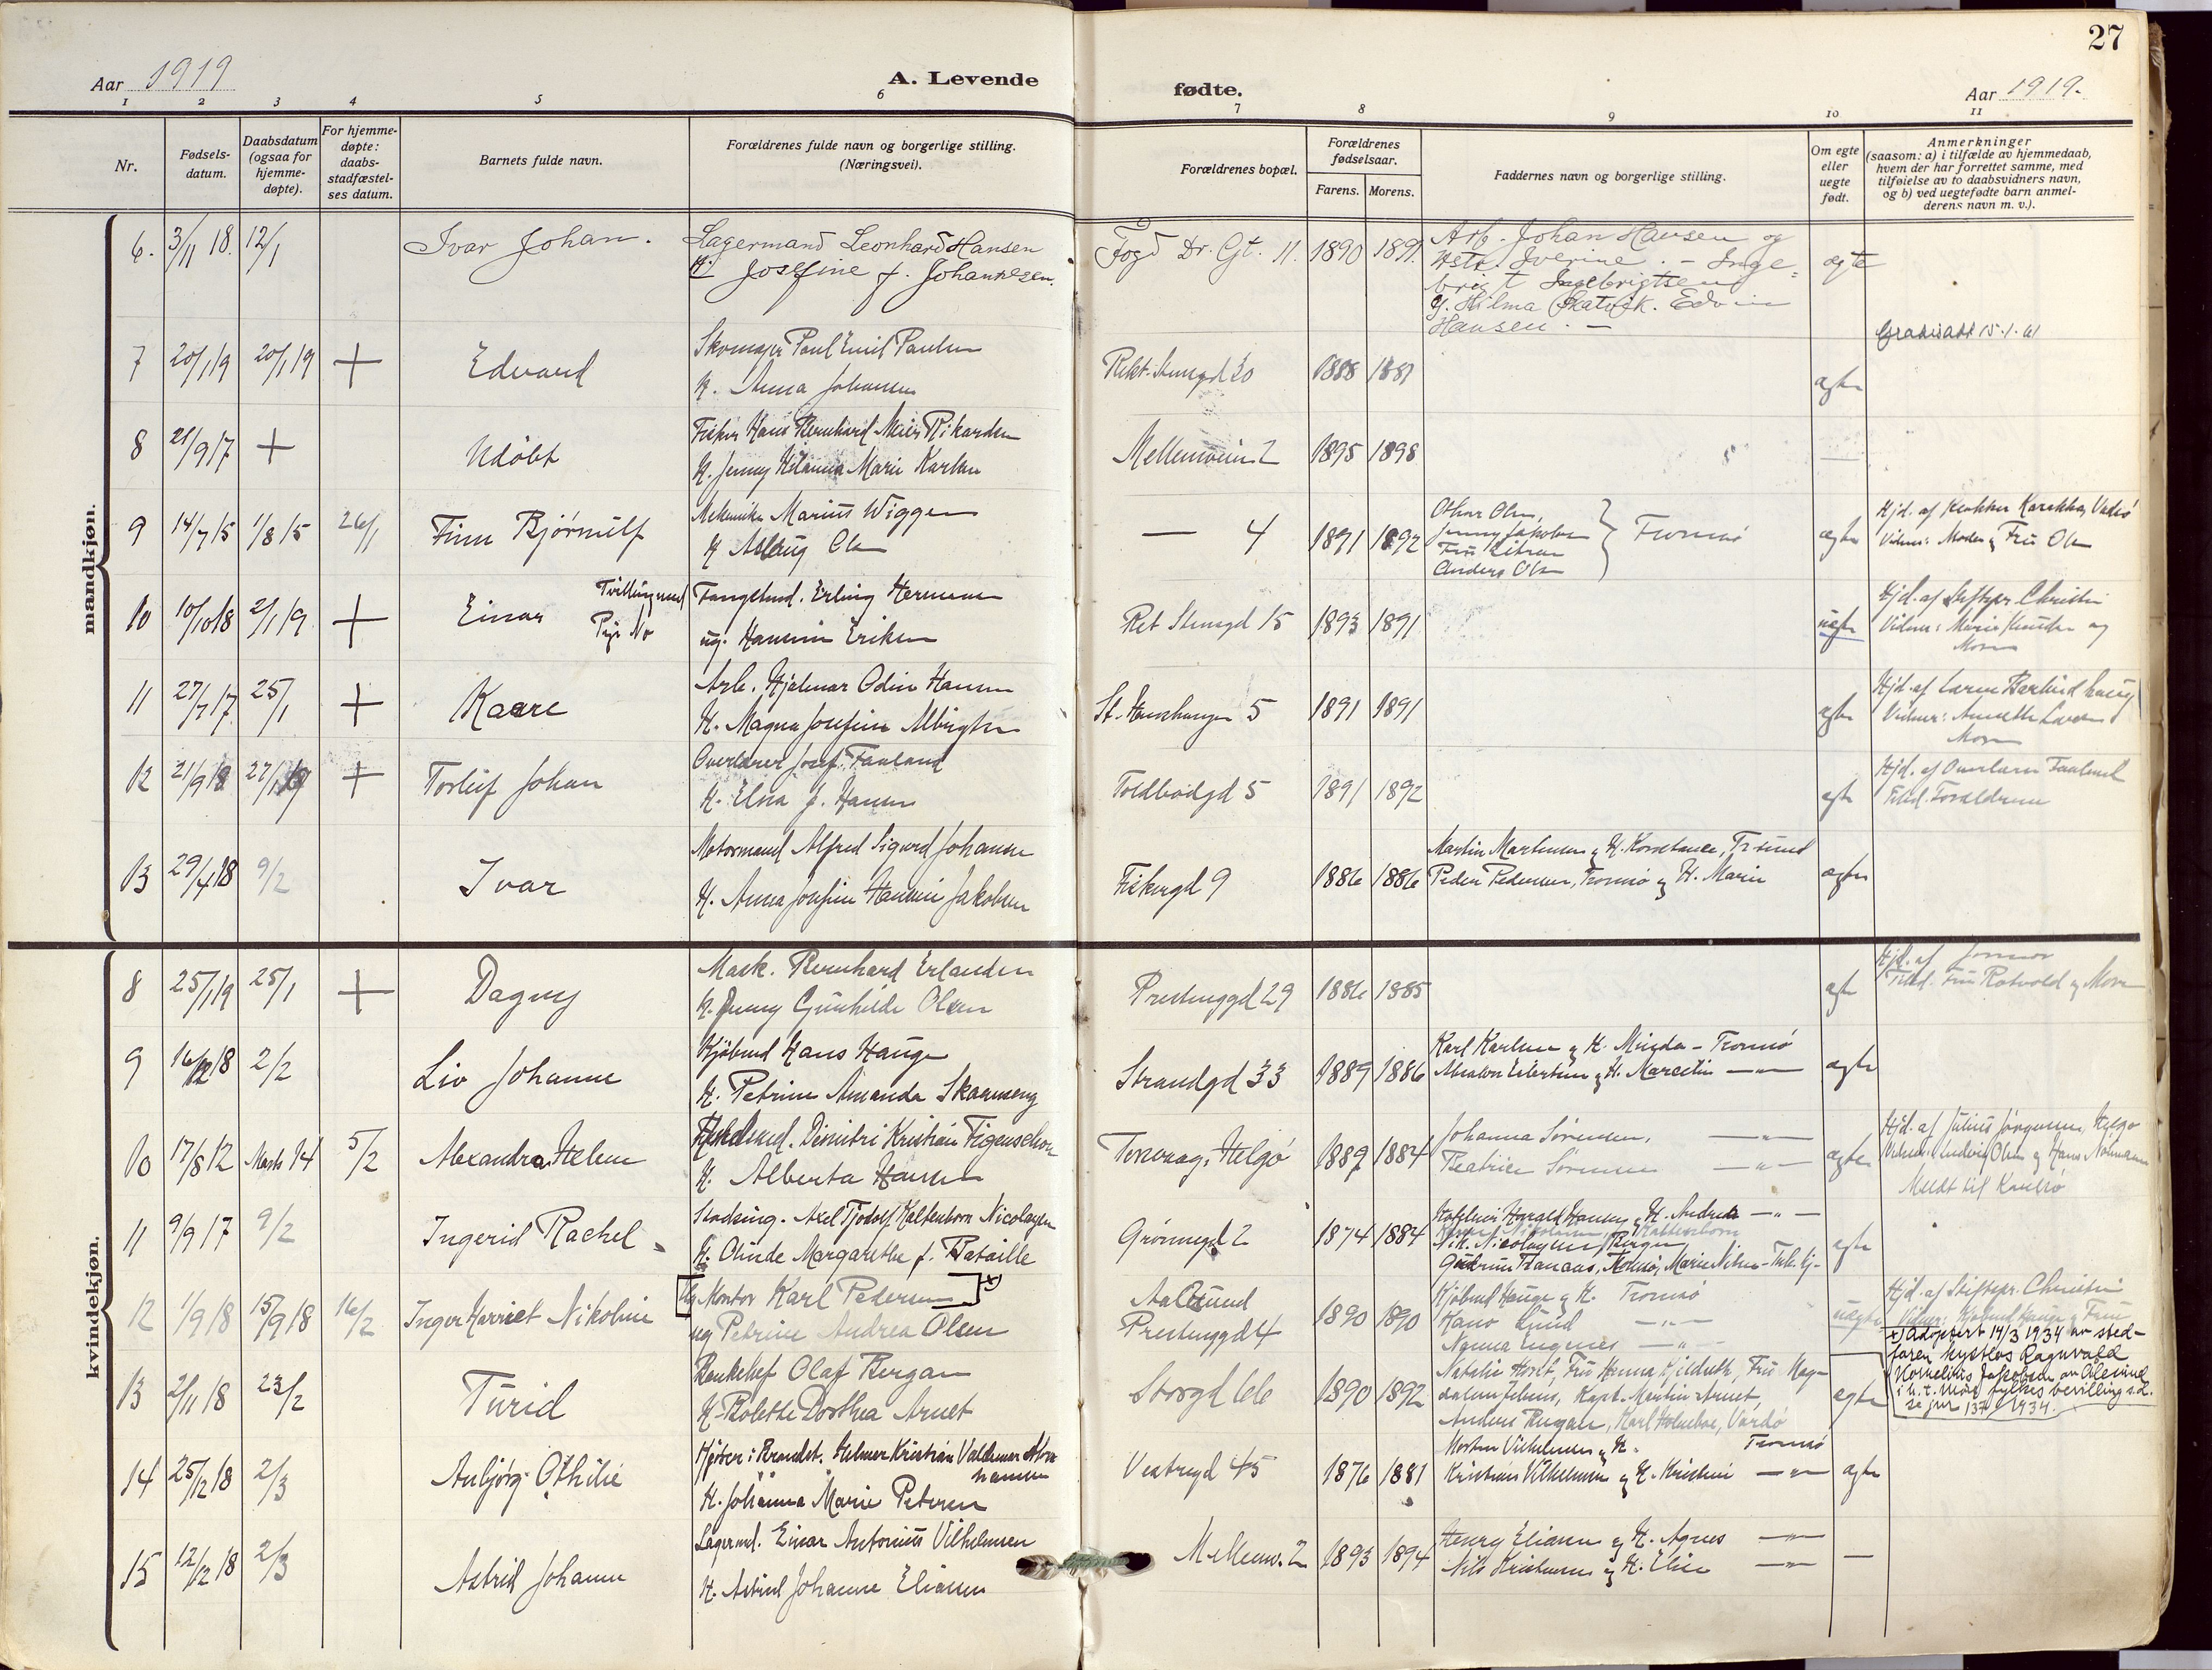 27
Aar 1919
A. Levende
fødte.
Aar 1919.
1 2 3 4 5 6 7 8 9 10 11
Nr.
Fødsels-
datum.
Daabsdatum
(ogsaa for
hjemme-
døpte).
For hjemme-
døpte:
daabs-
stadfæstel-
ses datum.
Barnets fulde navn.
Forældrenes fulde navn og borgerlige stilling.
(Næringsvei).
Forældrenes bopæl.
Forældrenes
fødselsaar.
Farens. Morens.
Faddernes navn og borgerlige stilling.
Om egte
eller
uegte
født.
Anmerkninger
(saasom: a) i tilfælde av hjemmedaab,
hvem der har forrettet samme, med
tilføielse av to daabsvidners navn,
og b) ved uegtefødte barn anmel-
derens navn m. v.).
mandkjøn.
6. 3/11 18. 12/1 Ivar Johan.
Lagermand Leonhard Hansen
H. Josefine f. Johannesen.
Fogd Dr. Gt. 11. 1890 1891
Arb. Johan Hansen og
Hstr. Iverine. - Inge-
brigt Ingebrigtsen
Hilma Skatvik. Edvin
Hansen. -
egte
7 20/1 19 20/1 19 + Edvard
Skomager Paul Emil Paulsen
H. Anna Johansen
1888 1881 egte
8 21/9 17 + Udøbt
Fisker Hans Bernhard Meier Rikardsen
H. Jenny Marie Karlsen
Mellemveien 2 1895 1898
9 14/7 15 1/8 15 26/1 Finn Bjørnulf
Mekaniker Marius Wiggen
H Aslaug Olsen
— 4 1891 1892
Othar Olsen,
Jenny Jakobsen
Anders Olsen
Tromsø
egte
Hjd. af Klokker Vadsø
Vidner: Moder og Fru Olsen
10 10/10 18 2/1 19 + Einar Tvilling med
Pige No
Erling Hermansen
ug. Hansine Eriksen
Ret Strengd 15 1893 1891
uegte
Hjd. af Stiftspr. Christie
Vidner: Marie Knudsen og
Moren
11 27/7 17 25/1 + Kaare
Arb. Hjalmar Odin Hansen
H. Magna Josefine Albrigtsen
St. Hanshaugen 5 1891 1891
egte
Hjd. af
Vidner: Larsen
Moren
12 21/9 18 27/1 19 + Torleif Johan
Overlærer Josef Faaland
H. Elna J. Hansen
Toldbodgd 5 1891 1892
egte
Hjd. af Overlærer Faaland
Tilsd. Forældrene
13 29/4 18 9/2 Ivar
Motormand Alfred Sigurd Johansen
H. Anna Josefine Hansine Jakobsen
Fiskergd 9 1886 1886
Martin Martinsen og H. Konstance,
Peder Pedersen, Tromsø og H. Marie
egte
kvindekjøn.
8 25/1 19 25/1 + Dagny
Mask. Bernhard Erlandsen
H. Jenny Gunhilde Olsen
Prestenggd 29 1886 1885
egte
Hjd. af Jormor
Tilsd. Fru Rotvold og Moren
9 16/12 18 2/2 Liv Johanne
Kjøbmd Hans Hauge
H. Petrine Amanda Skaanseng
Strandgd 33 1889 1886
Karl Karlsen og H. Minda - Tromsø
Absalon Eilertsen og H. —"—
egte
10 17/8 12 Marts 14 5/2 Alexandra Helene
Dimitri Kristian Figenschou
H. Alberta Hansen
Torsvaag, Helgø 1889 1884
Johanna Sørensen, —"—
Beatrice Sørensen —"—
egte
Hjd. af Julius Jørgensen, Helgø
Vidner: Ludvig Olsen og Hans Normann
Meldt til Karlsø
11 9/9 17 9/2 Ingerid Rachel
Stadsing. Axel Tjodolf Kaltenborn Nicolaysen
H. Olinde Margarethe f. Bataille
Grønnegd 2 1874 1884
Harald Hansen og H. Andrea —"—
Nik. Nicolaysen, Bergen
egte
12 1/9 18 15/9 18 16/2 Inger Harriet Nikoline
Ug Montør Karl Pedersen x)
ug Petrine Andrea Olsen
Aalesund
Prestenggd 4 1890 1890
Kjøbmd Hauge og H. Tromsø
Hans Lund —"—
Nanna Engenes —"—
uegte
Hjd. af Stiftspr. Christie
Vidner: Kjøbmd Hauge og Frue
x) Adoptert 14/3 1934 av sted-
faren Ragnvald
Kornelius Jakobsen av Ålesund
i h. t. Møre fylkes bevilling s.d.
se jnr 137/1934.
13 2/11 18 23/2 Turid
Bankchef Olaf Bergan
H. Bolette Dorthea Arnet
Storgd 66 1890 1892
Natalie Horst, Fru Hanna Fru Mag-
dalene Kapt. Martin Arnet,
Anders Bergan, Karl Holmboe, Vardø
egte
14 25/12 18 2/3 Anbjørg Othilie
Kjører i Brandst. Helmer Kristian Valdemar Abra-
hamsen
H. Johanna Marie Petersen
Vestregd 45 1876 1881
Morten Vilhelmsen og H. Tromsø
Kristian Vilhelmsen og H. Kristine —"—
egte
15 12/12 18 2/3 Astrid Johanne
Lagermd. Einar Antonius Vilhelmsen
H. Astrid Johanne Eliassen
Mellemv. 2 1893 1894
Henry Eliassen og H. Agnes —"—
Nils Kristiansen og H. Elise —"—
—